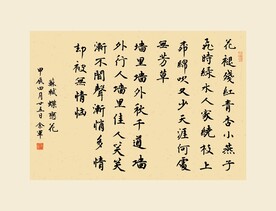 花褪殘紅青杏小燕子
飛時緑水人家繞枝上
柳綿吹又少天涯何處
無芳草
墙里墙外秋千道墙
外行人墙里佳人笑笑
漸不聞聲漸悄多情
却被無情惱
蘇軾蝶戀花
甲辰四月廿五日